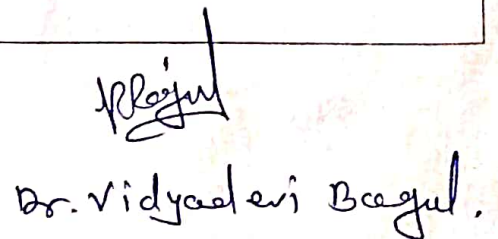 Dr. Vidyadevi Bagul.